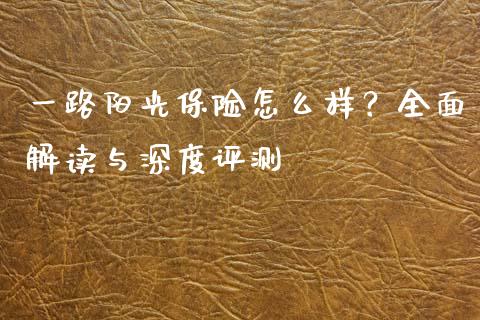 一路阳光保险怎么样？全面
解读与深度评测